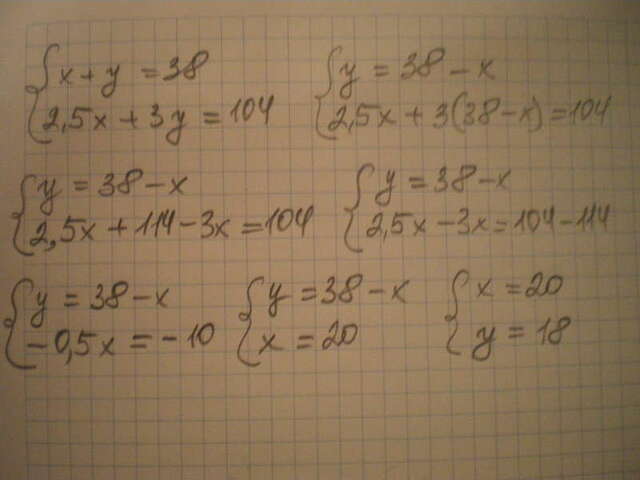 x + y = 38
2,5x + 3y = 104
y = 38 - x
2,5x + 3(38 - x) = 104
y = 38 - x
2,5x + 114 - 3x = 104
y = 38 - x
2,5x - 3x = 104 - 114
y = 38 - x
-0,5x = -10
y = 38 - x
x = 20
x = 20
y = 18